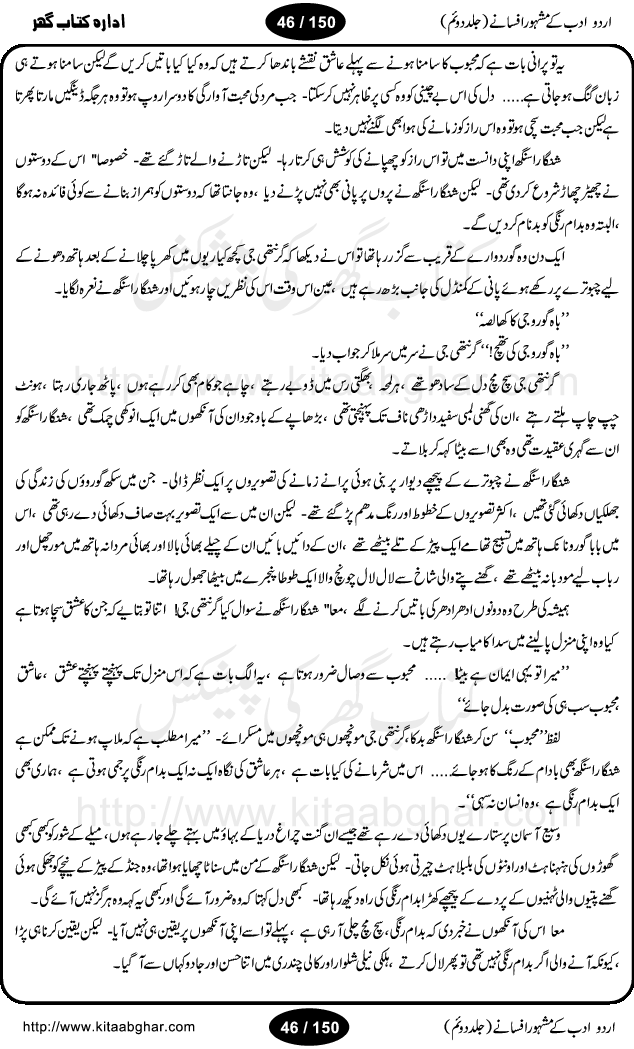 اردو ادب کے مشہور افسانے (جلد دوئم)
46 / 150
ادارہ کتاب گھر
یہ تو پرانی بات ہے کہ محبوب کا سامنا ہونے سے پہلے عاشق نقشے باندھا کرتے ہیں کہ وہ کیا کیا باتیں کریں گے لیکن سامنا ہوتے ہی
زبان گنگ ہو جاتی ہے..... دل کی اس بے چینی کو وہ کسی پر ظاہر نہیں کر سکتا۔ جب مرد کی محبت آوارگی کا دوسرا روپ ہو تو وہ ہر جگہ ڈینگیں مارتا پھرتا
ہے لیکن جب محبت سچی ہو تو وہ اس راز کو زمانے کی ہوا بھی لگنے نہیں دیتا۔
شنگارا سنگھ اپنی دانست میں تو اس راز کو چھپانے کی کوشش ہی کرتا رہا۔ لیکن تاڑنے والے تاڑ گئے تھے۔ خصوصا" اس کے دوستوں
نے چھیڑ چھاڑ شروع کردی تھی۔ لیکن شنگارا سنگھ نے پروں پر پانی بھی نہیں پڑنے دیا ،وہ جانتا تھا کہ دوستوں کو ہمراز بنانے سے کوئی فائدہ نہ ہوگا
،البتہ وہ بدام رنگی کو بدنام کر دیں گے۔
ایک دن وہ گوردوارے کے قریب سے گزر رہا تھا تو اس نے دیکھا کہ گرنتھی جی کچھ کیاریوں میں کھرپا چلانے کے بعد ہاتھ دھونے کے
لیے چبوترے پر رکھے ہوئے پانی کے کمنڈل کی جانب بڑھ رہے ہیں ،عین اس وقت اس کی نظریں چار ہوئیں اور شنگارا سنگھ نے نعرہ لگایا۔
’’باہ گورو جی کا کھالصہ‘‘
’’باہ گورو جی کی پھتح!‘‘ گرنتھی جی نے سر میں سر ملا کر جواب دیا۔
گرنتھی جی سچ مچ دل کے سادھو تھے ،ہر لمحہ بھگتی رس میں ڈوبے رہتے ،چاہے جو کام بھی کر رہے ہوں ،پاٹھ جاری رہتا ،ہونٹ
چپ چاپ ہلتے رہتے ،ان کی گھنی لمبی سفید داڑھی ناف تک پہنچتی تھی ،بڑھاپے کے باوجود ان کی آنکھوں میں ایک انوکھی چمک تھی ،شنگارا سنگھ کو
ان سے گہری عقیدت تھی وہ بھی اسے بیٹا کہہ کر بلاتے۔
شنگارا سنگھ نے چبوترے کے پیچھے دیوار پر بنی ہوئی پرانے زمانے کی تصویروں پر ایک نظر ڈالی۔ جن میں سکھ گوروؤں کی زندگی کی
جھلکیاں دکھائی گئی تھیں ،اکثر تصویروں کے خطوط اور رنگ مدھم پڑ گئے تھے۔ لیکن ان میں سے ایک تصویر بہت صاف دکھائی دے رہی تھی ،اس
میں بابا گورو نانک ہاتھ میں تسبیح تھامے ایک پیڑ کے تلے بیٹھے تھے ،ان کے دائیں بائیں ان کے چیلے بھائی بالا اور بھائی مردانہ ہاتھ میں مورچھل اور
رباب لیے مودبانہ بیٹھے تھے ،گھنے پتے والی شاخ سے لال لال چونچ والا ایک طوطا پنجرے میں بیٹھا جھول رہا تھا۔
ہمیشہ کی طرح وہ دونوں ادھر ادھر کی باتیں کرنے لگے ،معا" شنگارا سنگھ نے سوال کیا گرنتھی جی! اتنا تو بتایے کہ جن کا عشق سچا ہوتا ہے
کیا وہ اپنی منزل پا لینے میں سدا کامیاب رہتے ہیں۔
’’میرا تو یہی ایمان ہے بیٹا! ..... محبوب سے وصال ضرور ہوتا ہے ،یہ الگ بات ہے کہ اس منزل تک پہنچتے پہنچتے عشق ،عاشق
محبوب سب ہی کی صورت بدل جائے‘‘
لفظ ’’محبوب‘‘ سن کر شنگارا سنگھ بدکا ،گرنتھی جی مونچھوں ہی مونچھوں میں مسکرائے۔ ’’میرا مطلب ہے کہ ملاپ ہونے تک ممکن ہے
شنگارا سنگھ بھی بادام کے رنگ کا ہو جائے..... اس میں شرمانے کی کیا بات ہے ،ہر عاشق کی نگاہ ایک نہ ایک بدام رنگی پر جمی ہوتی ہے ،ہماری بھی
ایک بدام رنگی ہے ،وہ انسان نہ سہی‘‘۔
وسیع آسمان پر ستارے یوں دکھائی دے رہے تھے جیسے ان گنت چراغ دریا کے بہاؤ میں بہتے چلے جا رہے ہوں، میلے کے شور کو کبھی کبھی
گھوڑوں کی ہنہناہٹ اور اونٹوں کی بلبلاہٹ چیرتی ہوئی نکل جاتی۔ لیکن شنگارا سنگھ کے من میں سناٹا چھایا ہوا تھا، وہ جنڈ کے پیڑ کے نیچے کو جھکی ہوئی
گھنے پتیوں والی ٹہنیوں کے پردے کے پیچھے کھڑا بدام رنگی کی راہ دیکھ رہا تھا۔ کبھی دل کہتا کہ وہ ضرور آئے گی اور کبھی یہ کہہ وہ ہر گز نہیں آئے گی۔
معا اس کی آنکھوں نے خبر دی کہ بدام رنگی، سچ مچ چلی آرہی ہے ،پہلے تو اسے اپنی آنکھوں پر یقین ہی نہیں آیا۔ لیکن یقین کرنا ہی پڑا
،کیونکہ آنے والی اگر بدام رنگی نہیں تھی تو پھر لال کرتے ،ہلکی نیلی شلوار اور کالی چندری میں اتنا حسن اور جادو کہاں سے آ گیا۔
کتاب گھر کی پیشکش
http://www.kitaabghar.com
کتاب گھر کی پیشکش
http://www.kitaabghar.com
اردو ادب کے مشہور افسانے (جلد دوئم)
46 / 150
http://www.kitaabghar.com